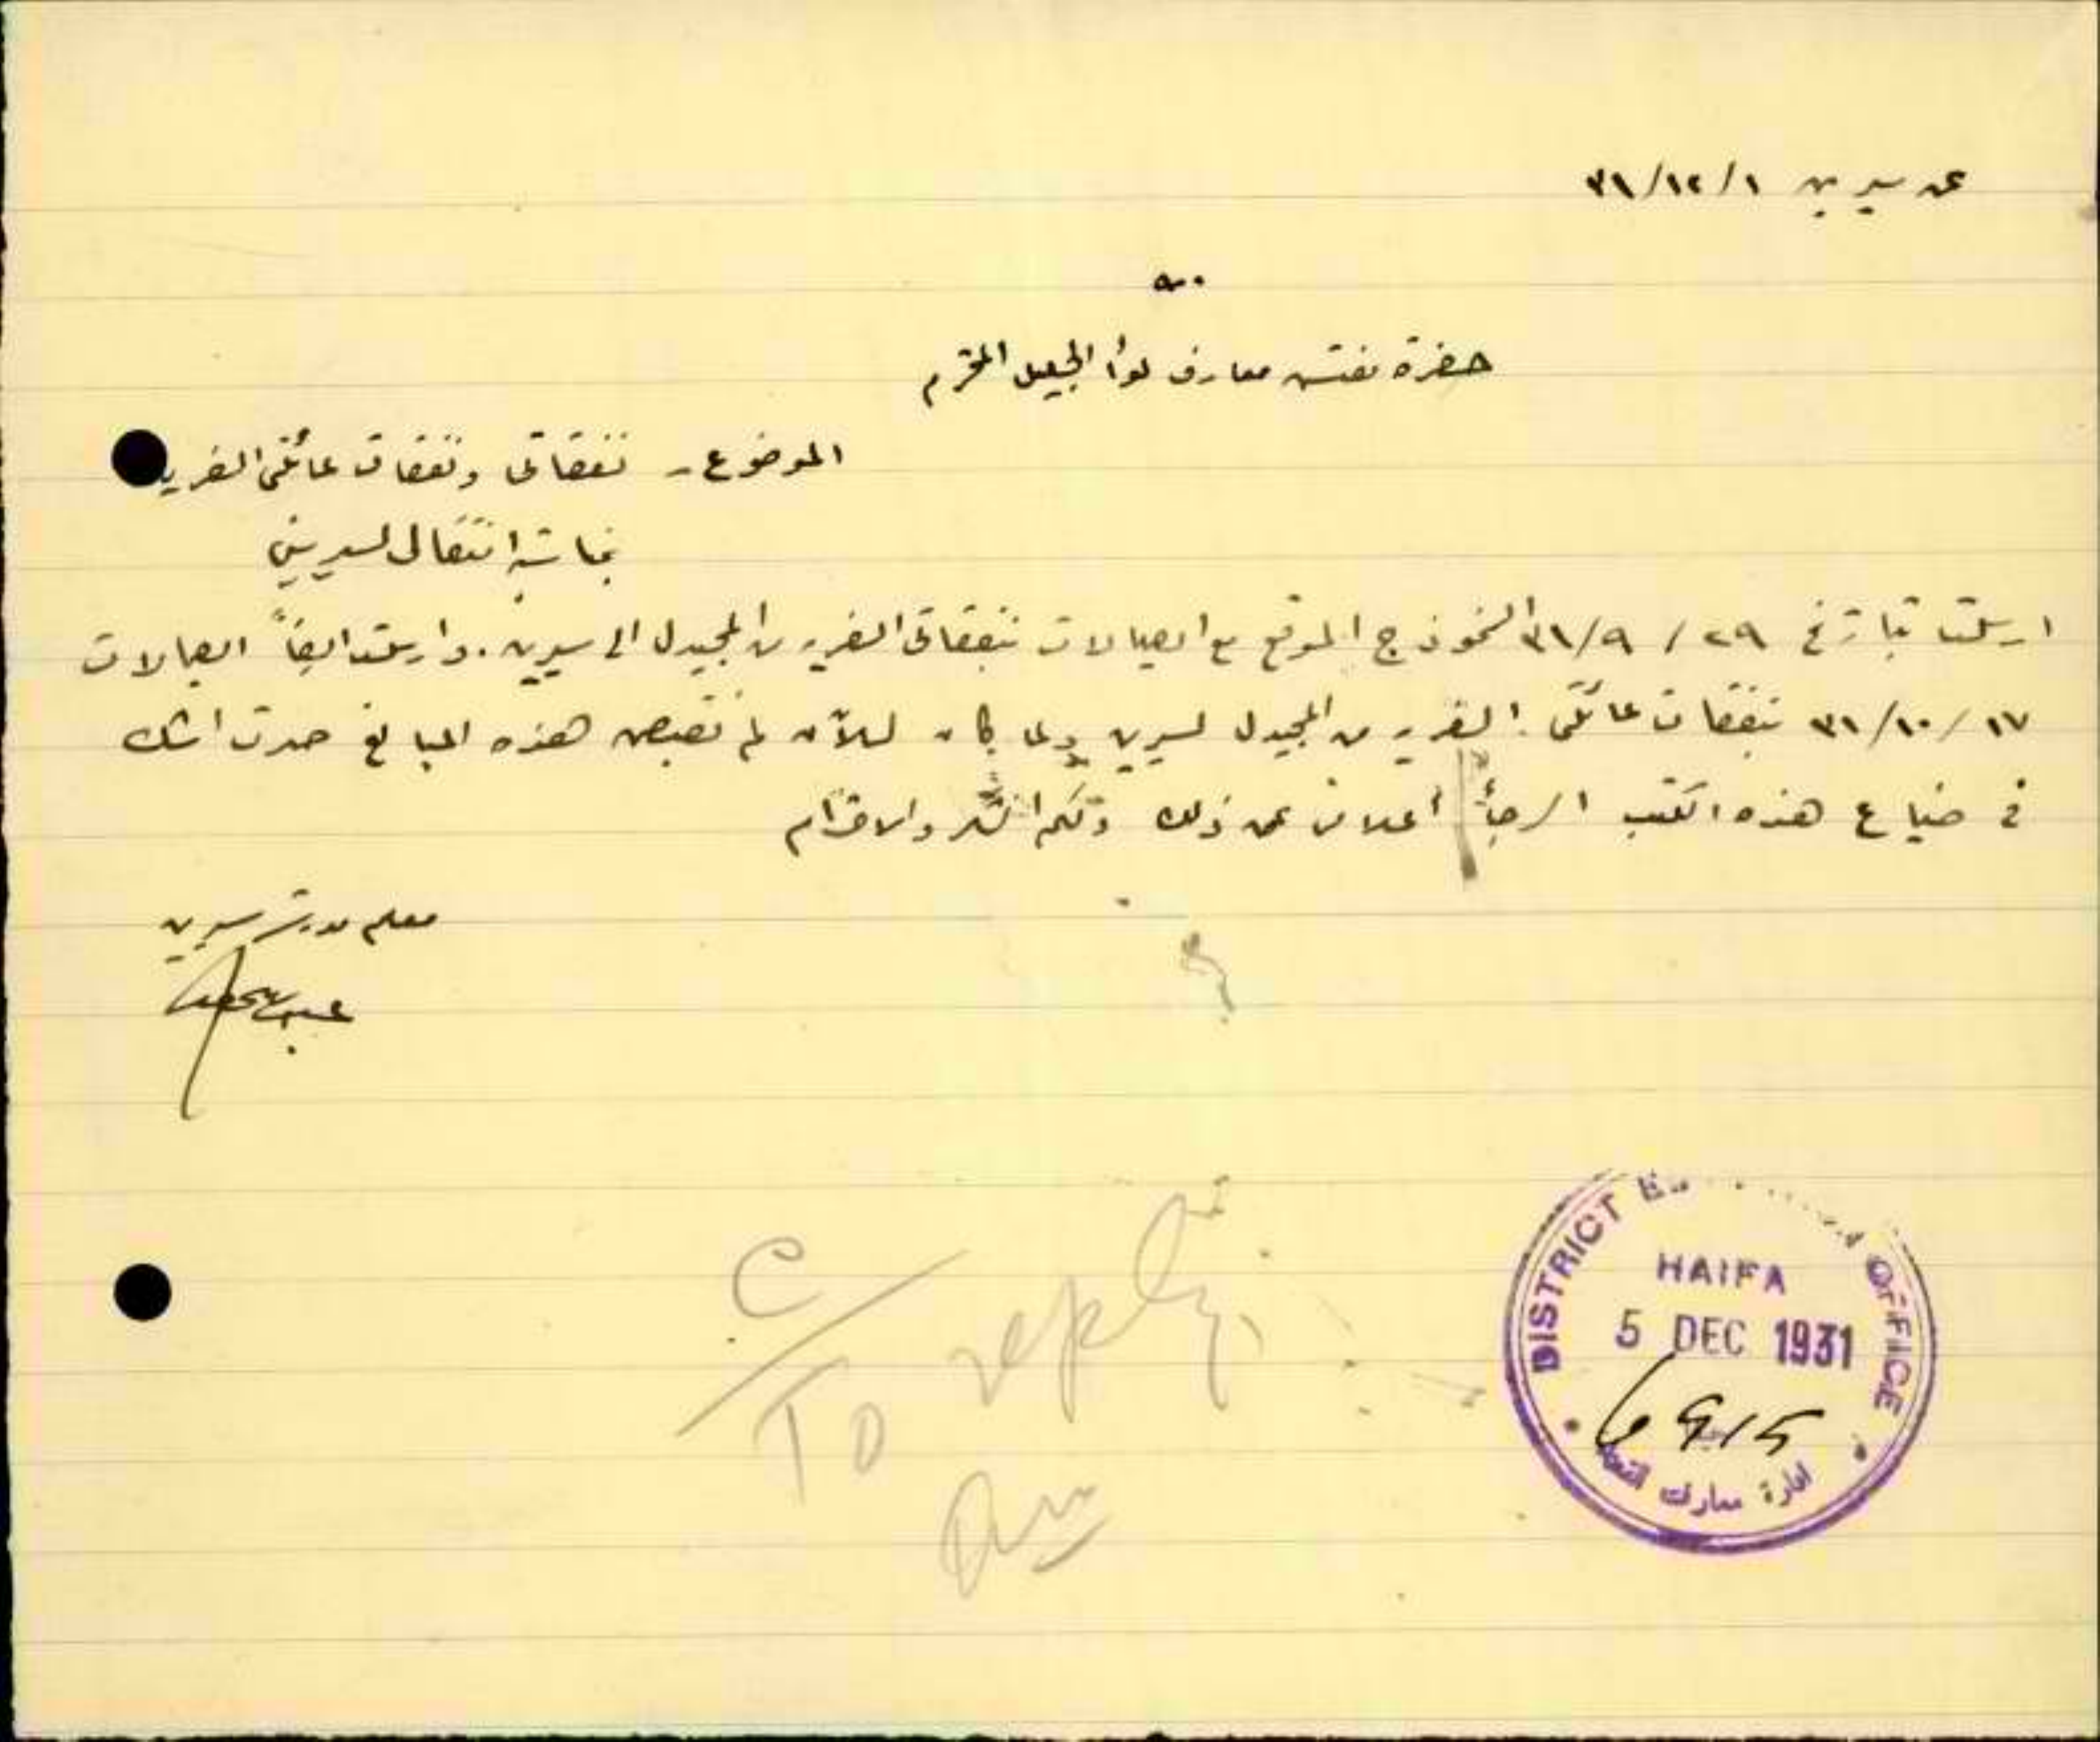 عن سيرين ٣١/١٢/١
حضرة مفتش معارف لوأ الجليل المحترم
الموضوع - نفقاتي ونفقات عائلتي السفرية
بمناسبة انتقالي لسيرين
ارسلت بتاريخ ٣١/٩/٢٩ النموذج الموقع مع الوصالات بنفقاتي السفرية من المجيدل الى سيرين. وارسلت ايضاً الوصالات
٣١/١٠/١٧ بنفقات عائلتي السفرية من المجيدل لسيرين ولما كان للآن لم نقبض هذه المبالغ صرت اشك
في ضياع هذه الكتب الرجأ اعلامي عن ذلك ولكم الشكر والاحترام
معلم مدرسة سيرين
C
To reply
DISTRICT OFFICE
HAIFA
5 DEC 1931
6915
ادارة معارف